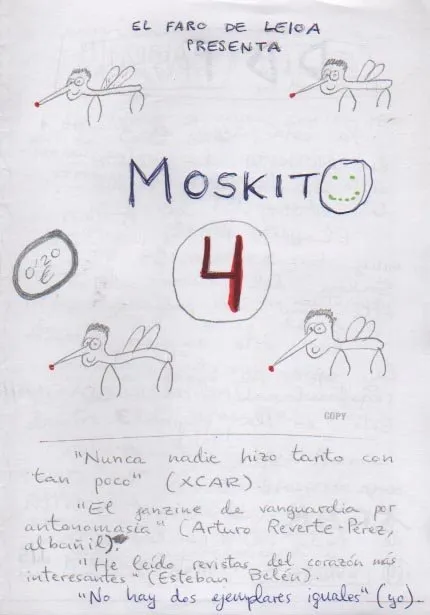 EL FARO DE LEIOA
PRESENTA
MOSKITO
0'20
€
4
COPY
"Nunca nadie hizo tanto con
tan poco" (XCAR).
"El fanzine de vanguardia por
antonomasia" (Arturo Reverte-Pérez,
albañil).
"He leído revistas del corazón más
interesantes" (Esteban Belén).
"No hay dos ejemplares iguales" (yo).